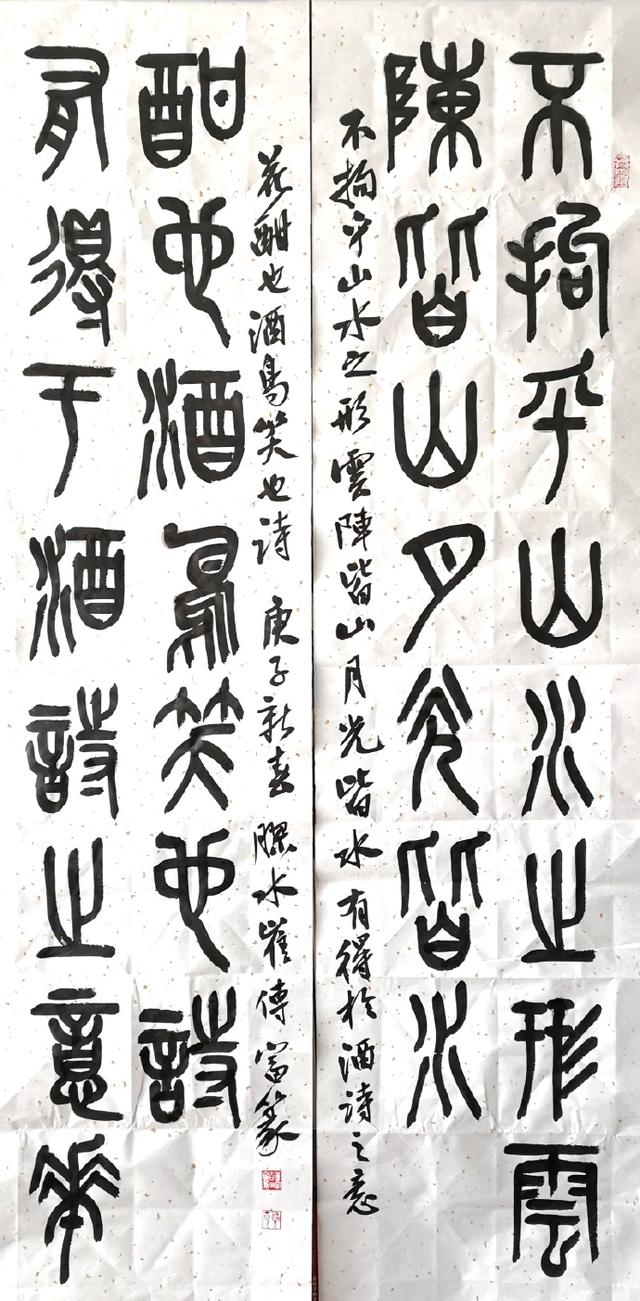 不拘乎山水之形雲
陳皆山月光皆水
不拘乎山水之形雲陣皆山月光皆水有得於酒诗之意
有得于酒詩之意華
酣也酒鳥笑也詩
花酣也酒鳥笑也诗 庚子新春 膠水崔傳富篆